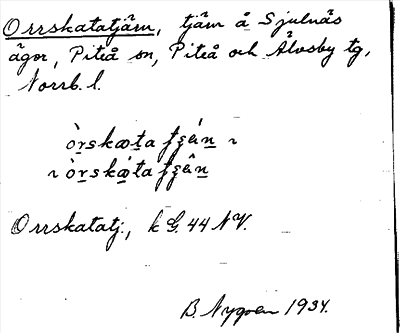 Orrskatatjärn, tjärn å Sjulnäs
ägor, Piteå sn, Piteå och Älvsby tg,
Norrb. l.
Orrskatatj., k G. 44 NV.
B. Nygren 1934.